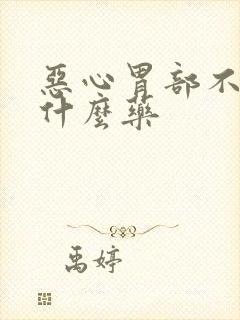 惡心胃部不
什麼藥
禹婷